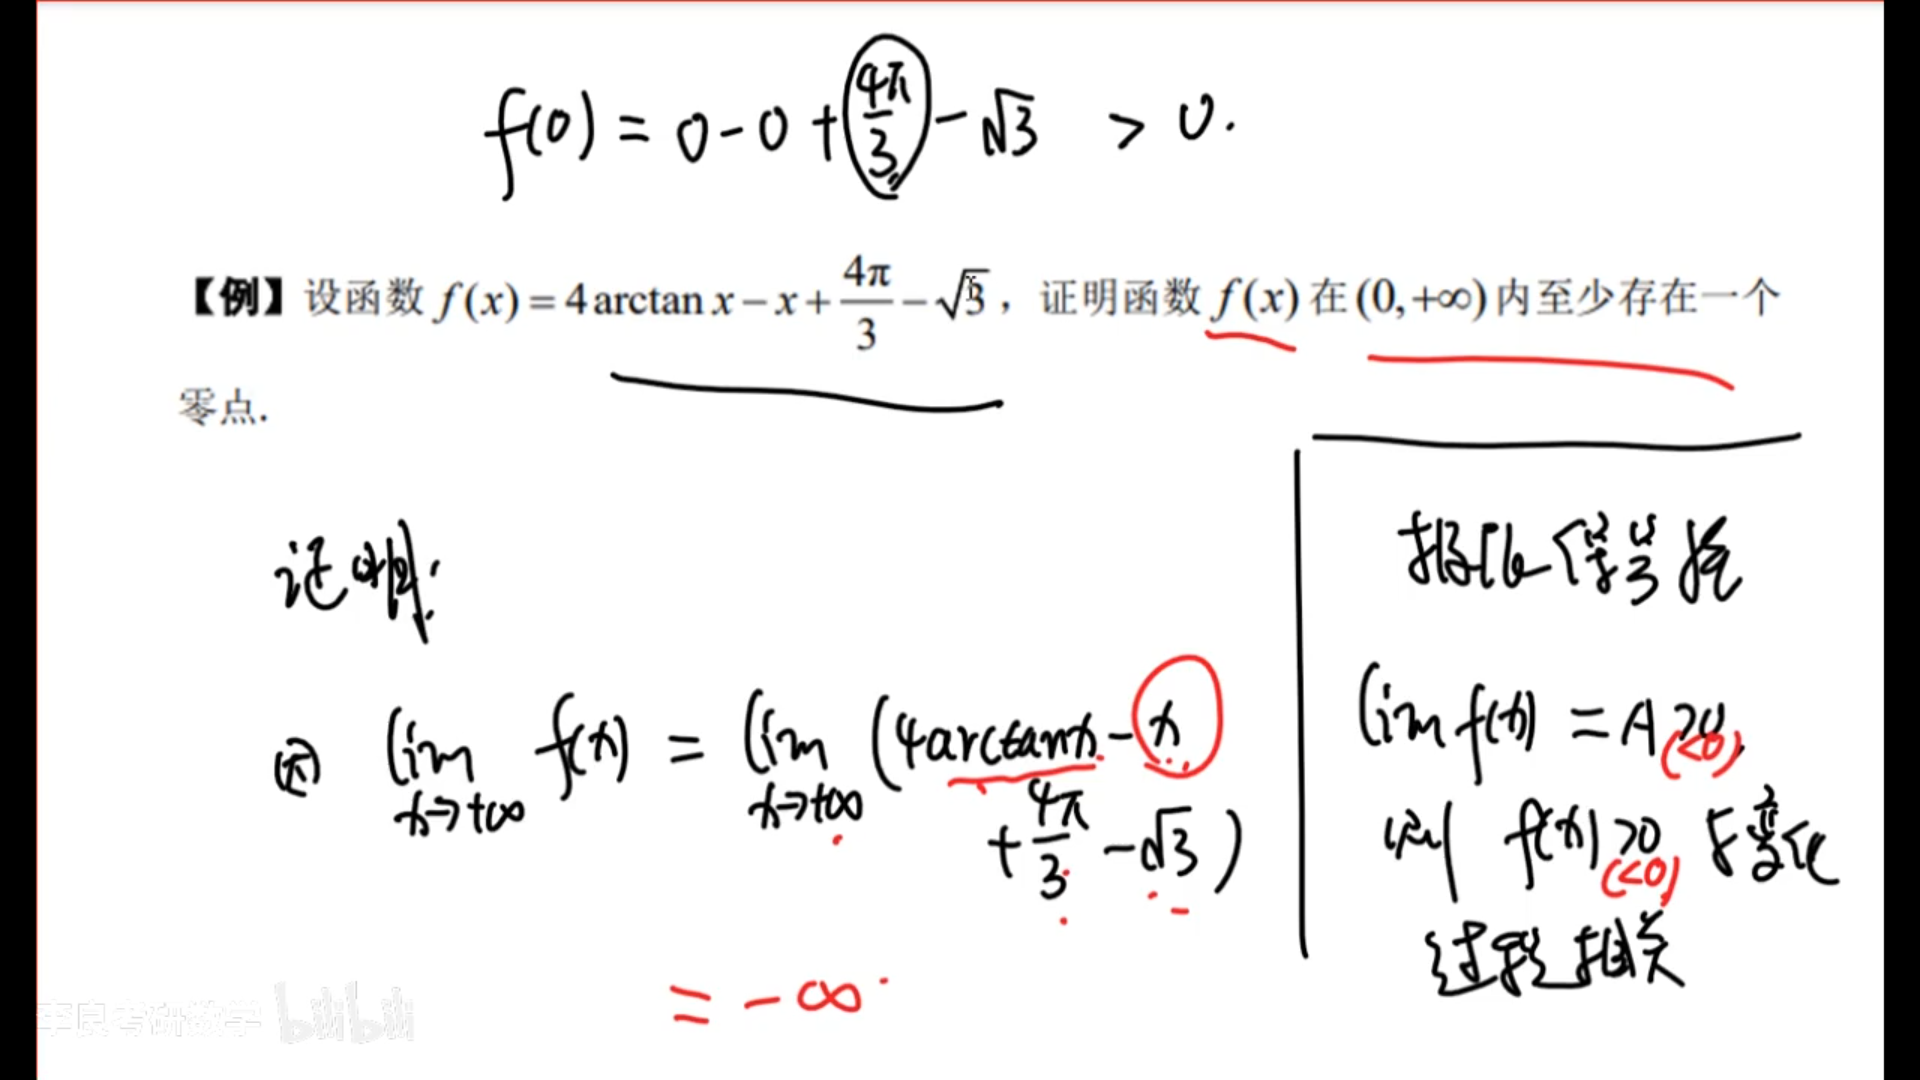 f(0) = 0 - 0 + 4π/3 - √3 > 0.
【例】设函数 f(x) = 4 arctan x − x + 4π/3 − √3，证明函数 f(x) 在 (0, +∞) 内至少存在一个
零点.
证明:
因 lim x→+∞ f(x) = lim x→+∞ (4arctanx - x
+ 4π/3 - √3)
= -∞
极限保号性
lim f(x) = A >0, (<0)
则 f(x) >0 (<0) 与变化
过程相关
李良考研数学 bilibili